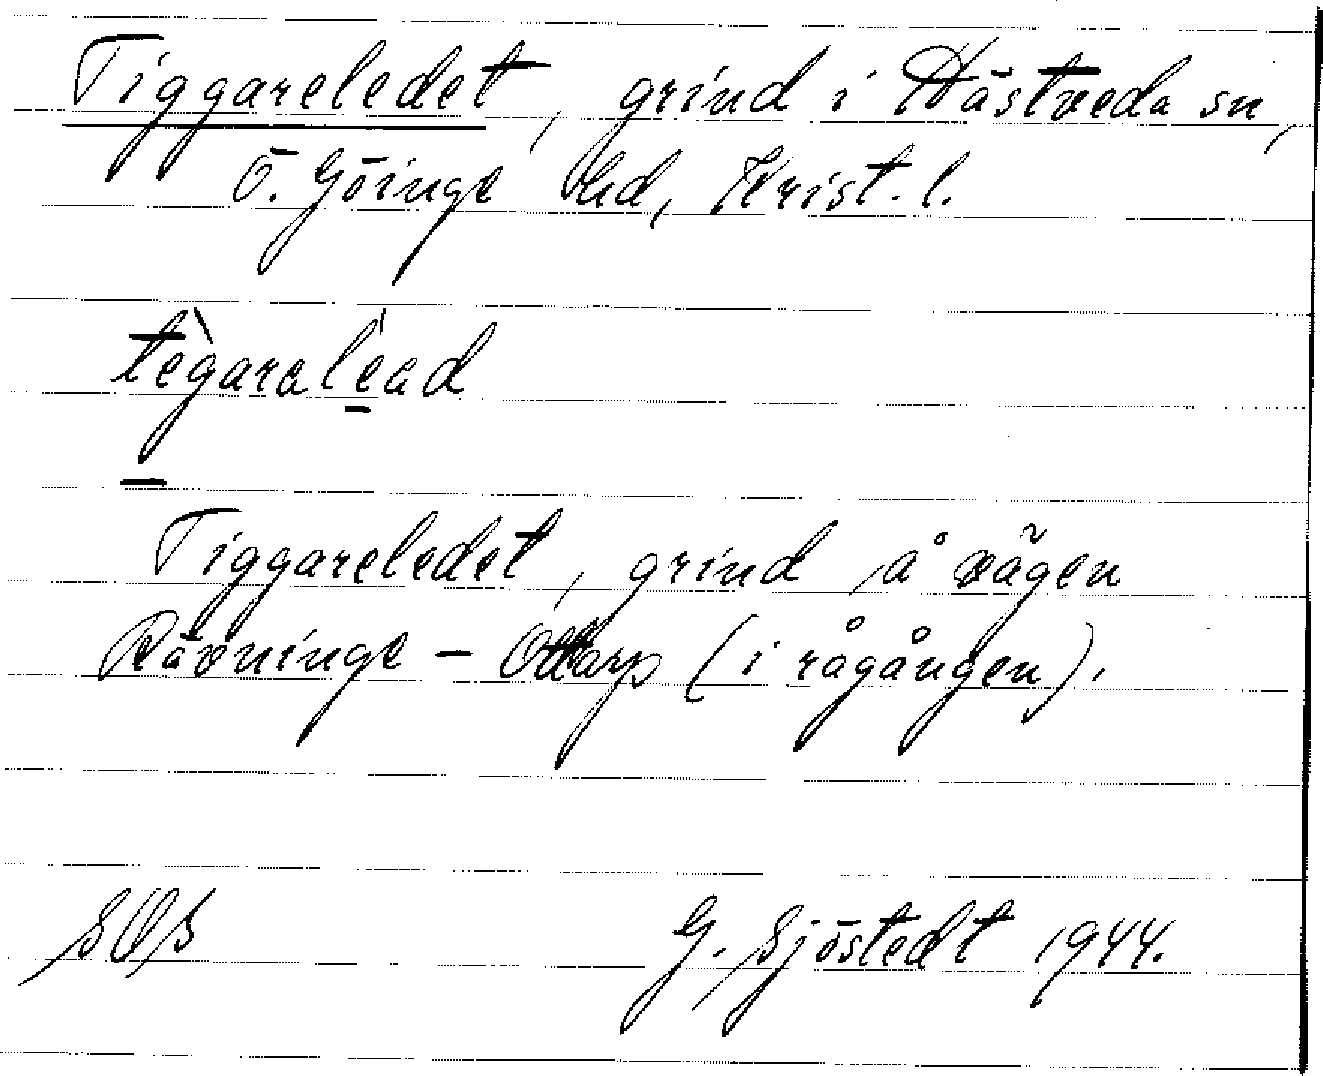 Tiggareledet, grind i Hästveda sn,
Ö. Göinge hd, Krist. l.
tègaraléad
Tiggareledet, grind å vägen
Rävninge – Ottarp (i rågången).
SOS G. Sjöstedt 1944.